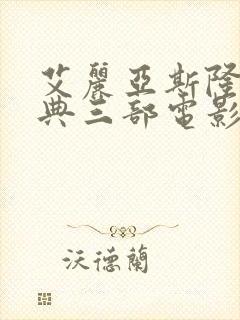 艾麗亞斯隆
典三部電影
沃德蘭